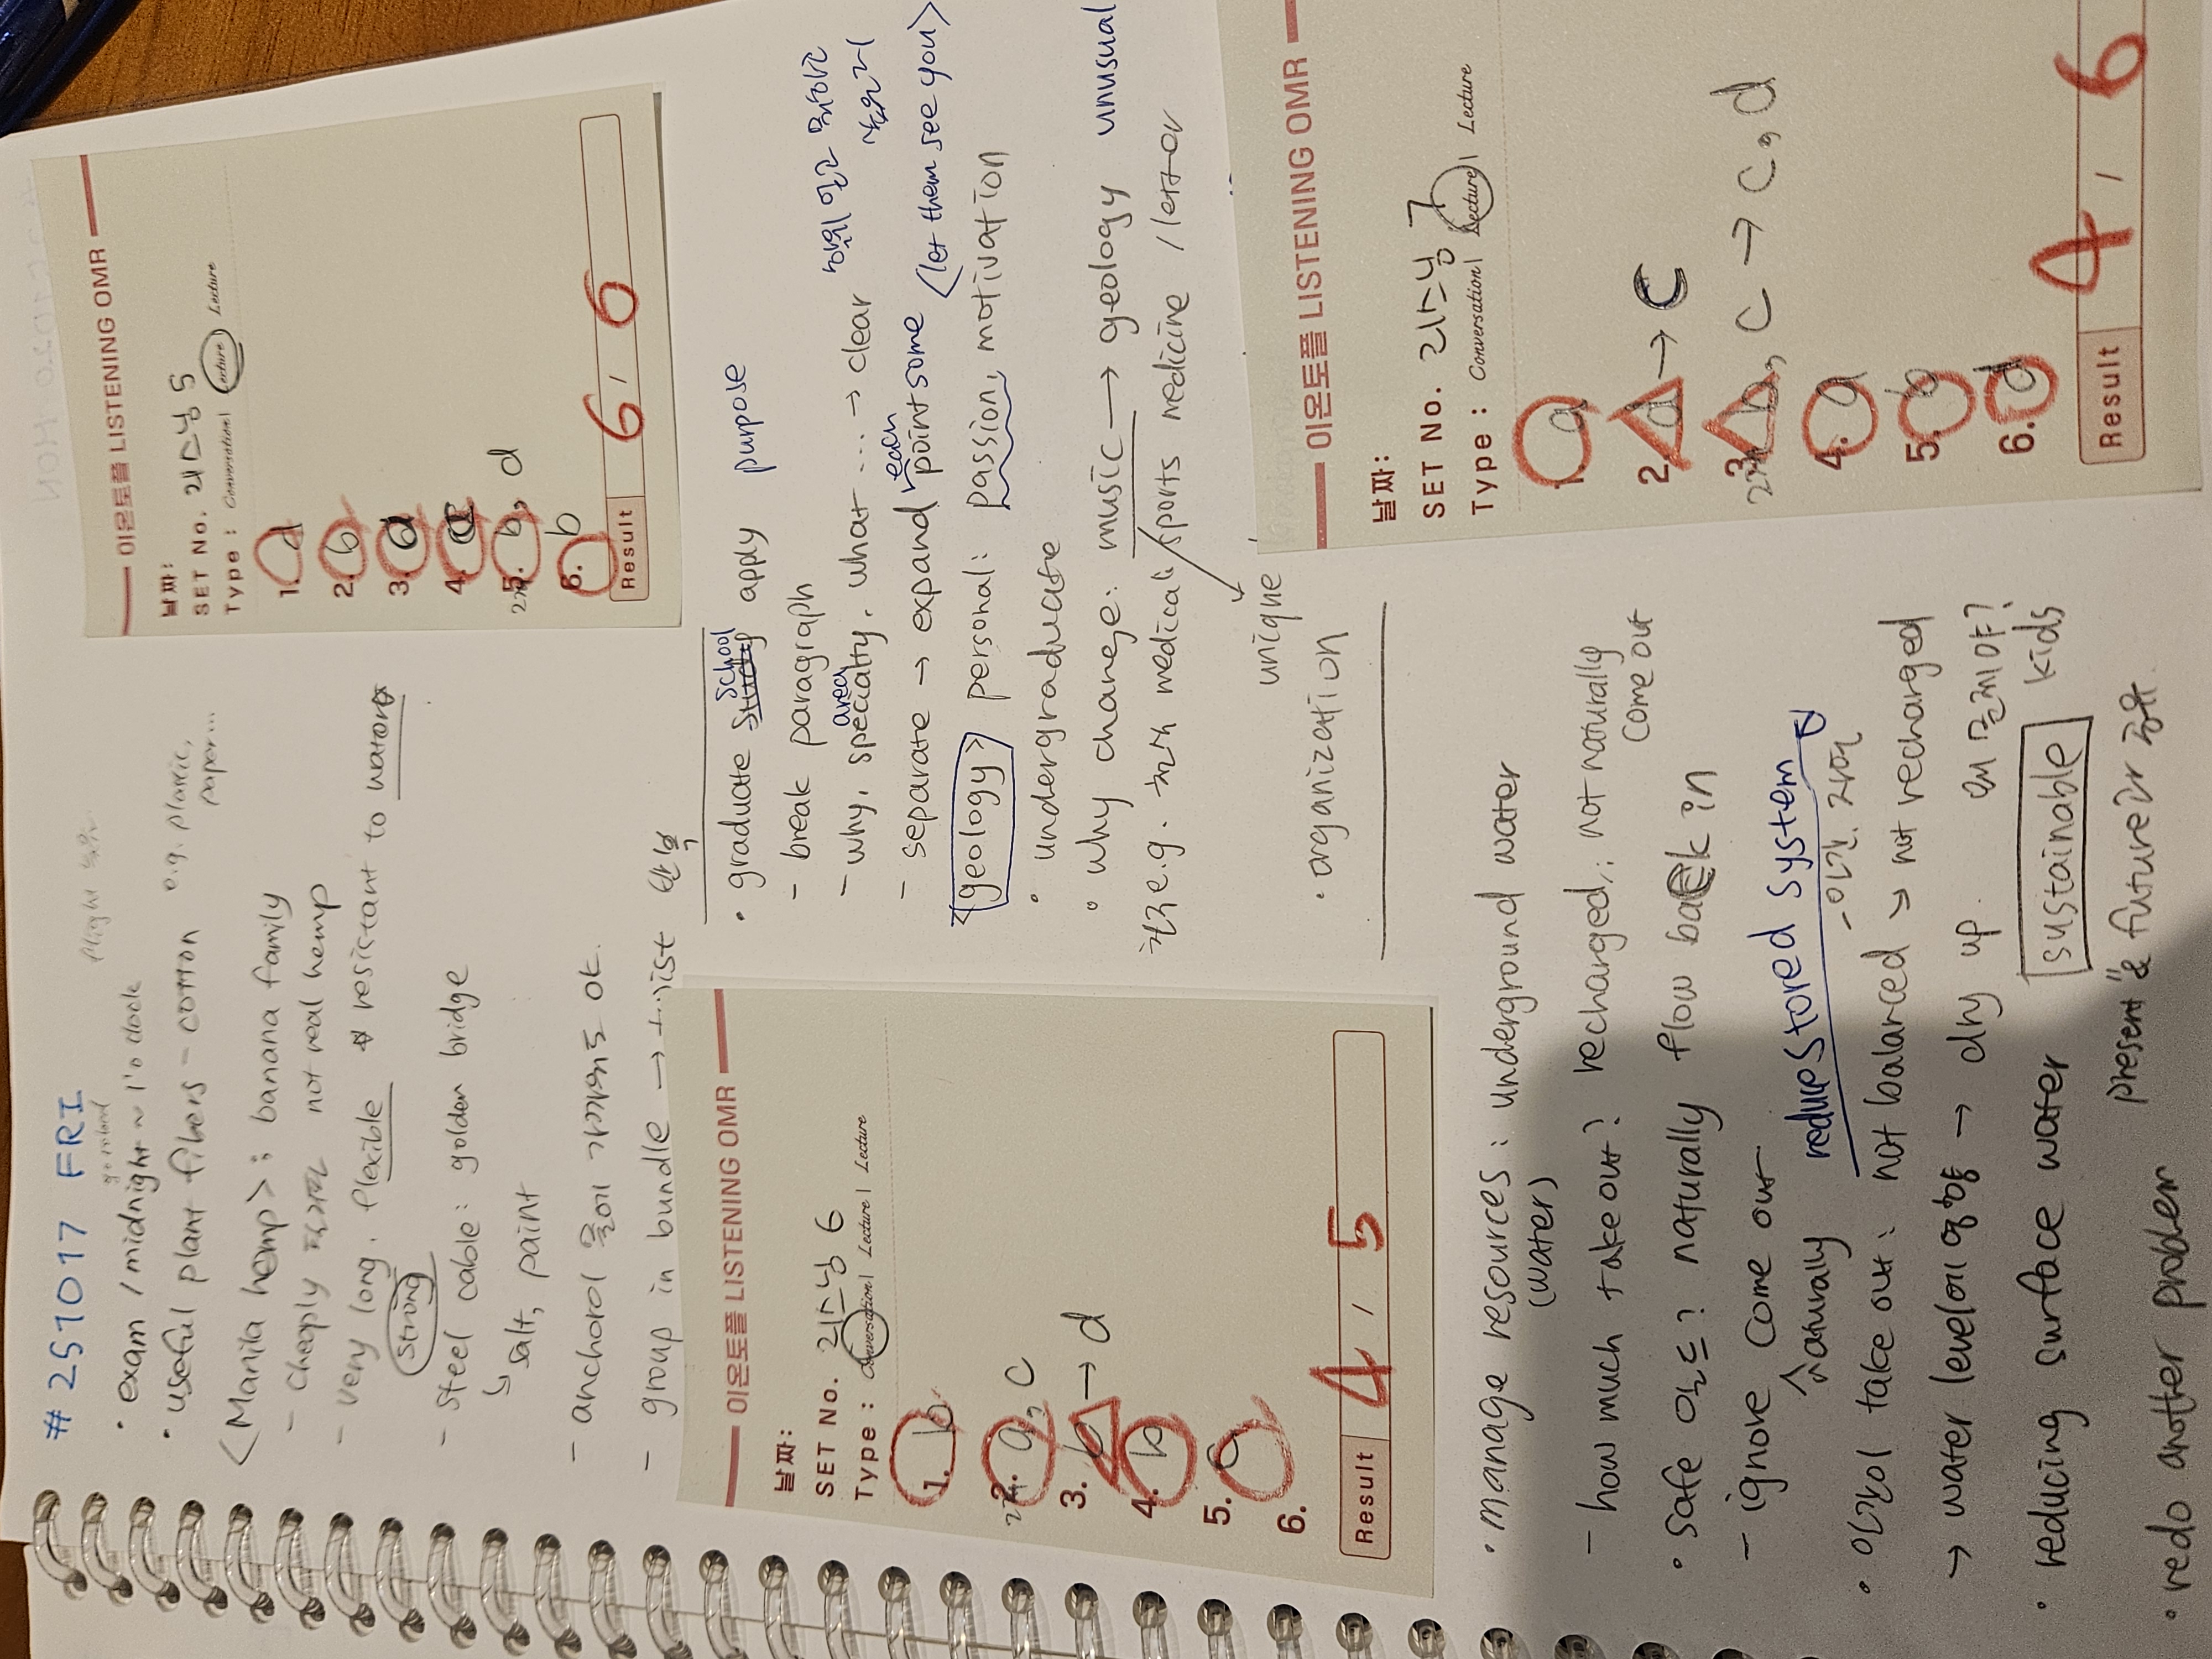 # 251017 FRI
· exam / midnight ~ 1'o clock
· useful plant fibers - cotton e.g. plastic, paper...
<Manila hemp> : banana family
- cheaply not real hemp
- very long. flexible & resistant to water
strong
- steel cable : golden bridge
↳ salt, paint
- anchor이 물에 가까워도 ok.
- group in bundle → twist 반복
이온토플 LISTENING OMR
날짜:
SET No. 리스닝 5
Type : Conversation | Lecture
1. d
2. b
3. a
4. c
5. b, d
6. b
Result 6 / 6
· graduate school apply purpose
- break paragraph
- why, specialty, what ... → clear
area
- separate → expand each point some <let them see you>
<geology> personal: passion, motivation
· undergraduate
· why change: music → geology unusual
e.g. medical / sports medicine / letter
unique
· organization
이온토플 LISTENING OMR
날짜:
SET No. 리스닝 6
Type : Conversation | Lecture | Lecture
1. b
2. a, c
3. → d
4. b
5. c
6.
Result 4 / 5
이온토플 LISTENING OMR
날짜:
SET No. 리스닝 7
Type : Conversation | Lecture | Lecture
1. a
2. → c
3. b, c → c, d
4. a
5. b
6. d
Result 4 / 6
· manage resources : underground water
(water)
- how much take out? recharged,: not naturally come out
· safe 의도? naturally flow back in
- ignore come out
naturally
reduce stored system
- 인간, 자연
· 인간이 take out : not balanced → not recharged
→ water level에 영향 → dry up. 왜 문제야?
· reducing surface water sustainable kids
present & future
· redo another problem